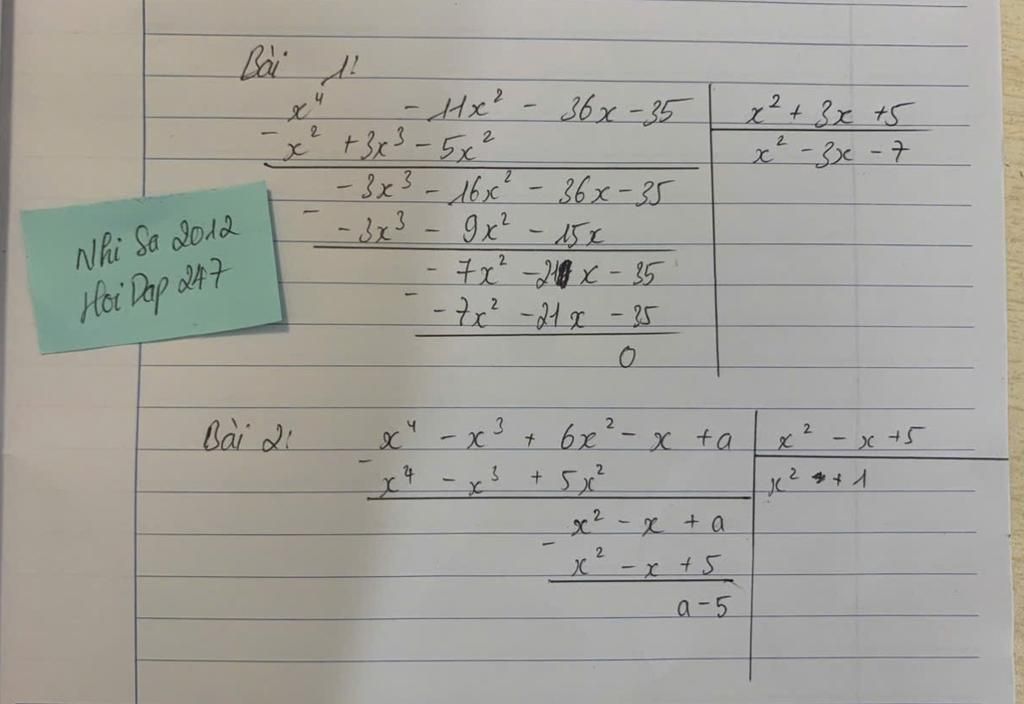 Bài 1:
x⁴ - 11x² - 36x - 35 | x² + 3x + 5
- x² + 3x³ - 5x² | x² - 3x - 7
- 3x³ - 16x² - 36x - 35
- - 3x³ - 9x² - 15x
- 7x² - 21x - 35
- - 7x² - 21x - 35
0
Nhi Sa 2012
Hoi Dap 247
Bài 2: x⁴ - x³ + 6x² - x + a | x² - x + 5
- x⁴ - x³ + 5x² | x² + 1
x² - x + a
- x² - x + 5
a - 5